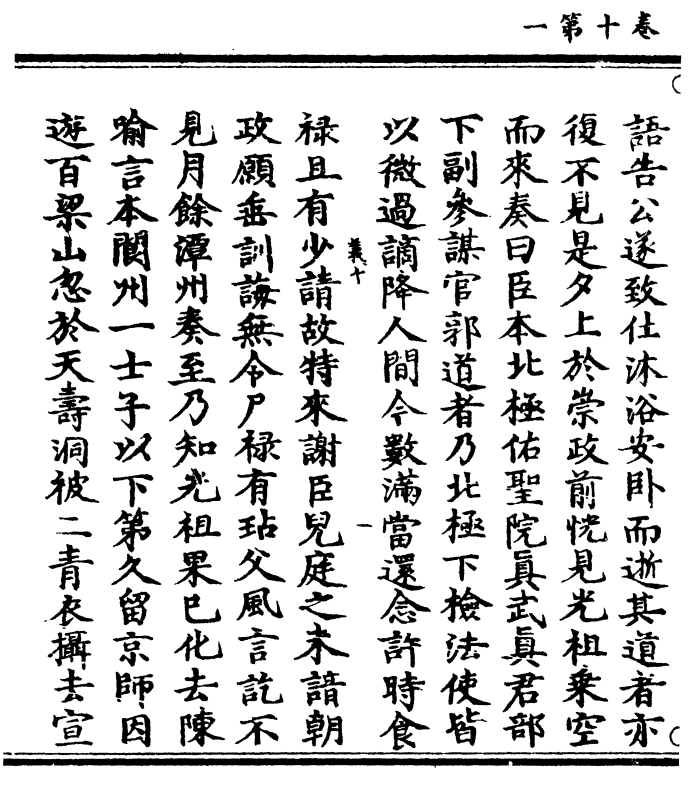 卷十第一
語告公遂致仕沐浴安卧而逝其道者亦
復不見是夕上於崇政前恍見光祖乗空
而來奏曰臣本北極佑聖院眞武眞君部
下副參謀官郭道者乃北極下檢法使皆
以微過謫降人間今數滿當還念許時食
義十
一
禄且有少請故特來謝臣兒庭之未諳朝
政願垂訓誨無令尸禄有玷父風言訖不
見月餘潭州奏至乃知光祖果巳化去陳
喻言本閬州一士子以下第久留京師因
遊百梁山忽於天壽洞被二青衣攝去宣